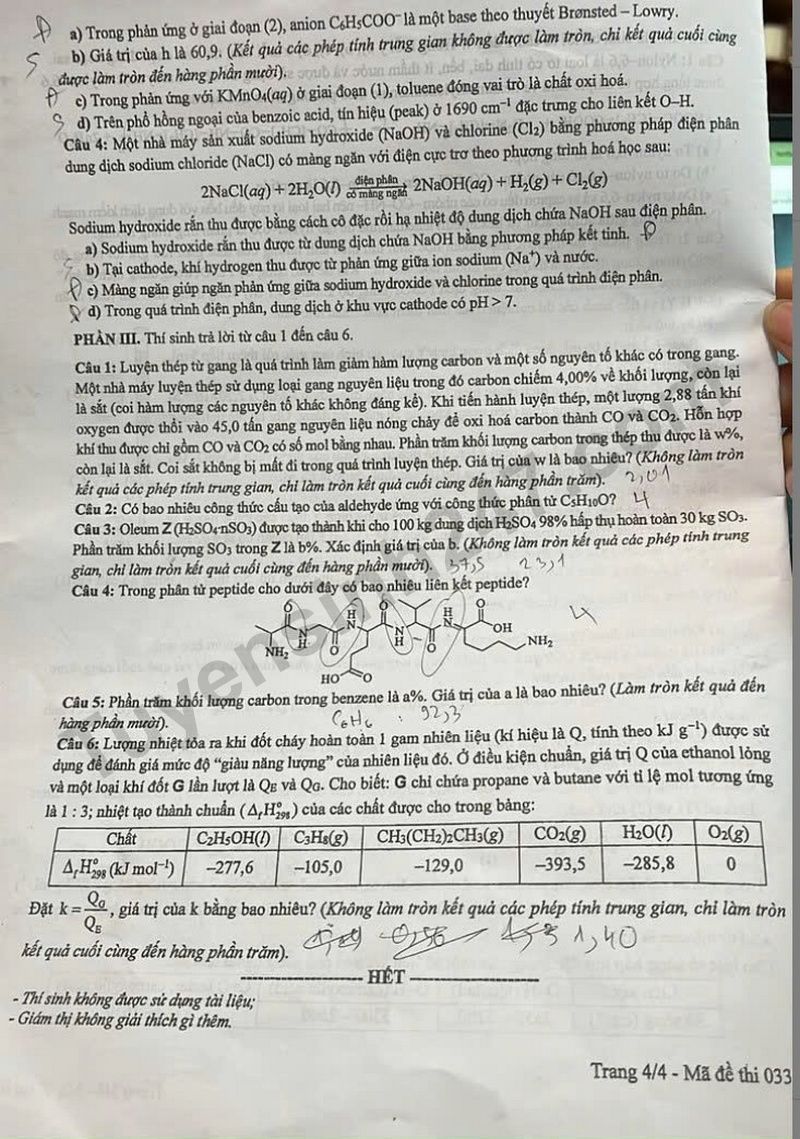 Đ a) Trong phản ứng ở giai đoạn (2), anion C₆H₅COO⁻ là một base theo thuyết Brønsted – Lowry.
S b) Giá trị của h là 60,9. (Kết quả các phép tính trung gian không được làm tròn, chỉ kết quả cuối cùng
được làm tròn đến hàng phần mười).
c) Trong phản ứng với KMnO₄(aq) ở giai đoạn (1), toluene đóng vai trò là chất oxi hoá.
S d) Trên phổ hồng ngoại của benzoic acid, tín hiệu (peak) ở 1690 cm⁻¹ đặc trưng cho liên kết O–H.
Câu 4: Một nhà máy sản xuất sodium hydroxide (NaOH) và chlorine (Cl₂) bằng phương pháp điện phân
dung dịch sodium chloride (NaCl) có màng ngăn với điện cực trơ theo phương trình hoá học sau:
điện phân
2NaCl(aq) + 2H₂O(l) → 2NaOH(aq) + H₂(g) + Cl₂(g)
có màng ngăn
Sodium hydroxide rắn thu được bằng cách cô đặc rồi hạ nhiệt độ dung dịch chứa NaOH sau điện phân.
a) Sodium hydroxide rắn thu được từ dung dịch chứa NaOH bằng phương pháp kết tinh. Đ
S b) Tại cathode, khí hydrogen thu được từ phản ứng giữa ion sodium (Na⁺) và nước.
Đ c) Màng ngăn giúp ngăn phản ứng giữa sodium hydroxide và chlorine trong quá trình điện phân.
d) Trong quá trình điện phân, dung dịch ở khu vực cathode có pH > 7.
PHẦN III. Thí sinh trả lời từ câu 1 đến câu 6.
Câu 1: Luyện thép từ gang là quá trình làm giảm hàm lượng carbon và một số nguyên tố khác có trong gang.
Một nhà máy luyện thép sử dụng loại gang nguyên liệu trong đó carbon chiếm 4,00% về khối lượng, còn lại
là sắt (coi hàm lượng các nguyên tố khác không đáng kể). Khi tiến hành luyện thép, một lượng 2,88 tấn khí
oxygen được thổi vào 45,0 tấn gang nguyên liệu nóng chảy để oxi hoá carbon thành CO và CO₂. Hỗn hợp
khí thu được chỉ gồm CO và CO₂ có số mol bằng nhau. Phần trăm khối lượng carbon trong thép thu được là w%,
còn lại là sắt. Coi sắt không bị mất đi trong quá trình luyện thép. Giá trị của w là bao nhiêu? (Không làm tròn
kết quả các phép tính trung gian, chỉ làm tròn kết quả cuối cùng đến hàng phần trăm). 2,01
Câu 2: Có bao nhiêu công thức cấu tạo của aldehyde ứng với công thức phân tử C₅H₁₀O? 4
Câu 3: Oleum Z (H₂SO₄.nSO₃) được tạo thành khi cho 100 kg dung dịch H₂SO₄ 98% hấp thụ hoàn toàn 30 kg SO₃.
Phần trăm khối lượng SO₃ trong Z là b%. Xác định giá trị của b. (Không làm tròn kết quả các phép tính trung
gian, chỉ làm tròn kết quả cuối cùng đến hàng phần mười). 37,5 23,1
Câu 4: Trong phân tử peptide cho dưới đây có bao nhiêu liên kết peptide?
O H N O H N O OH
NH₂ N H O N H O NH₂ 4
HO O
Câu 5: Phần trăm khối lượng carbon trong benzene là a%. Giá trị của a là bao nhiêu? (Làm tròn kết quả đến
hàng phần mười). C₆H₆ : 92,3
Câu 6: Lượng nhiệt tỏa ra khi đốt cháy hoàn toàn 1 gam nhiên liệu (kí hiệu là Q, tính theo kJ g⁻¹) được sử
dụng để đánh giá mức độ “giàu năng lượng” của nhiên liệu đó. Ở điều kiện chuẩn, giá trị Q của ethanol lỏng
và một loại khí đốt G lần lượt là Q_E và Q_G. Cho biết: G chỉ chứa propane và butane với tỉ lệ mol tương ứng
là 1 : 3; nhiệt tạo thành chuẩn (Δ_fH°₂₉₈) của các chất được cho trong bảng:
Chất C₂H₅OH(l) C₃H₈(g) CH₃(CH₂)₂CH₃(g) CO₂(g) H₂O(l) O₂(g)
Δ_fH°₂₉₈ (kJ mol⁻¹) –277,6 –105,0 –129,0 –393,5 –285,8 0
Đặt k = Q_G/Q_E, giá trị của k bằng bao nhiêu? (Không làm tròn kết quả các phép tính trung gian, chỉ làm tròn
kết quả cuối cùng đến hàng phần trăm). 1,40
HẾT
- Thí sinh không được sử dụng tài liệu;
- Giám thị không giải thích gì thêm.
Trang 4/4 - Mã đề thi 033